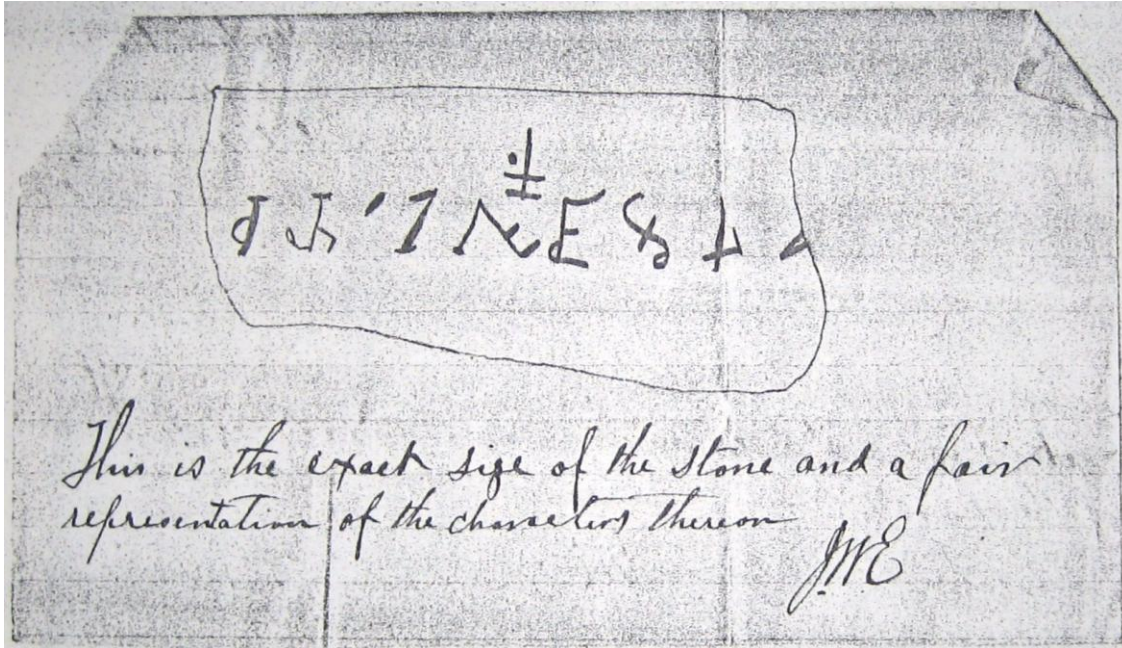 This is the exact size of the stone and a fair
representation of the characters thereon
JWE